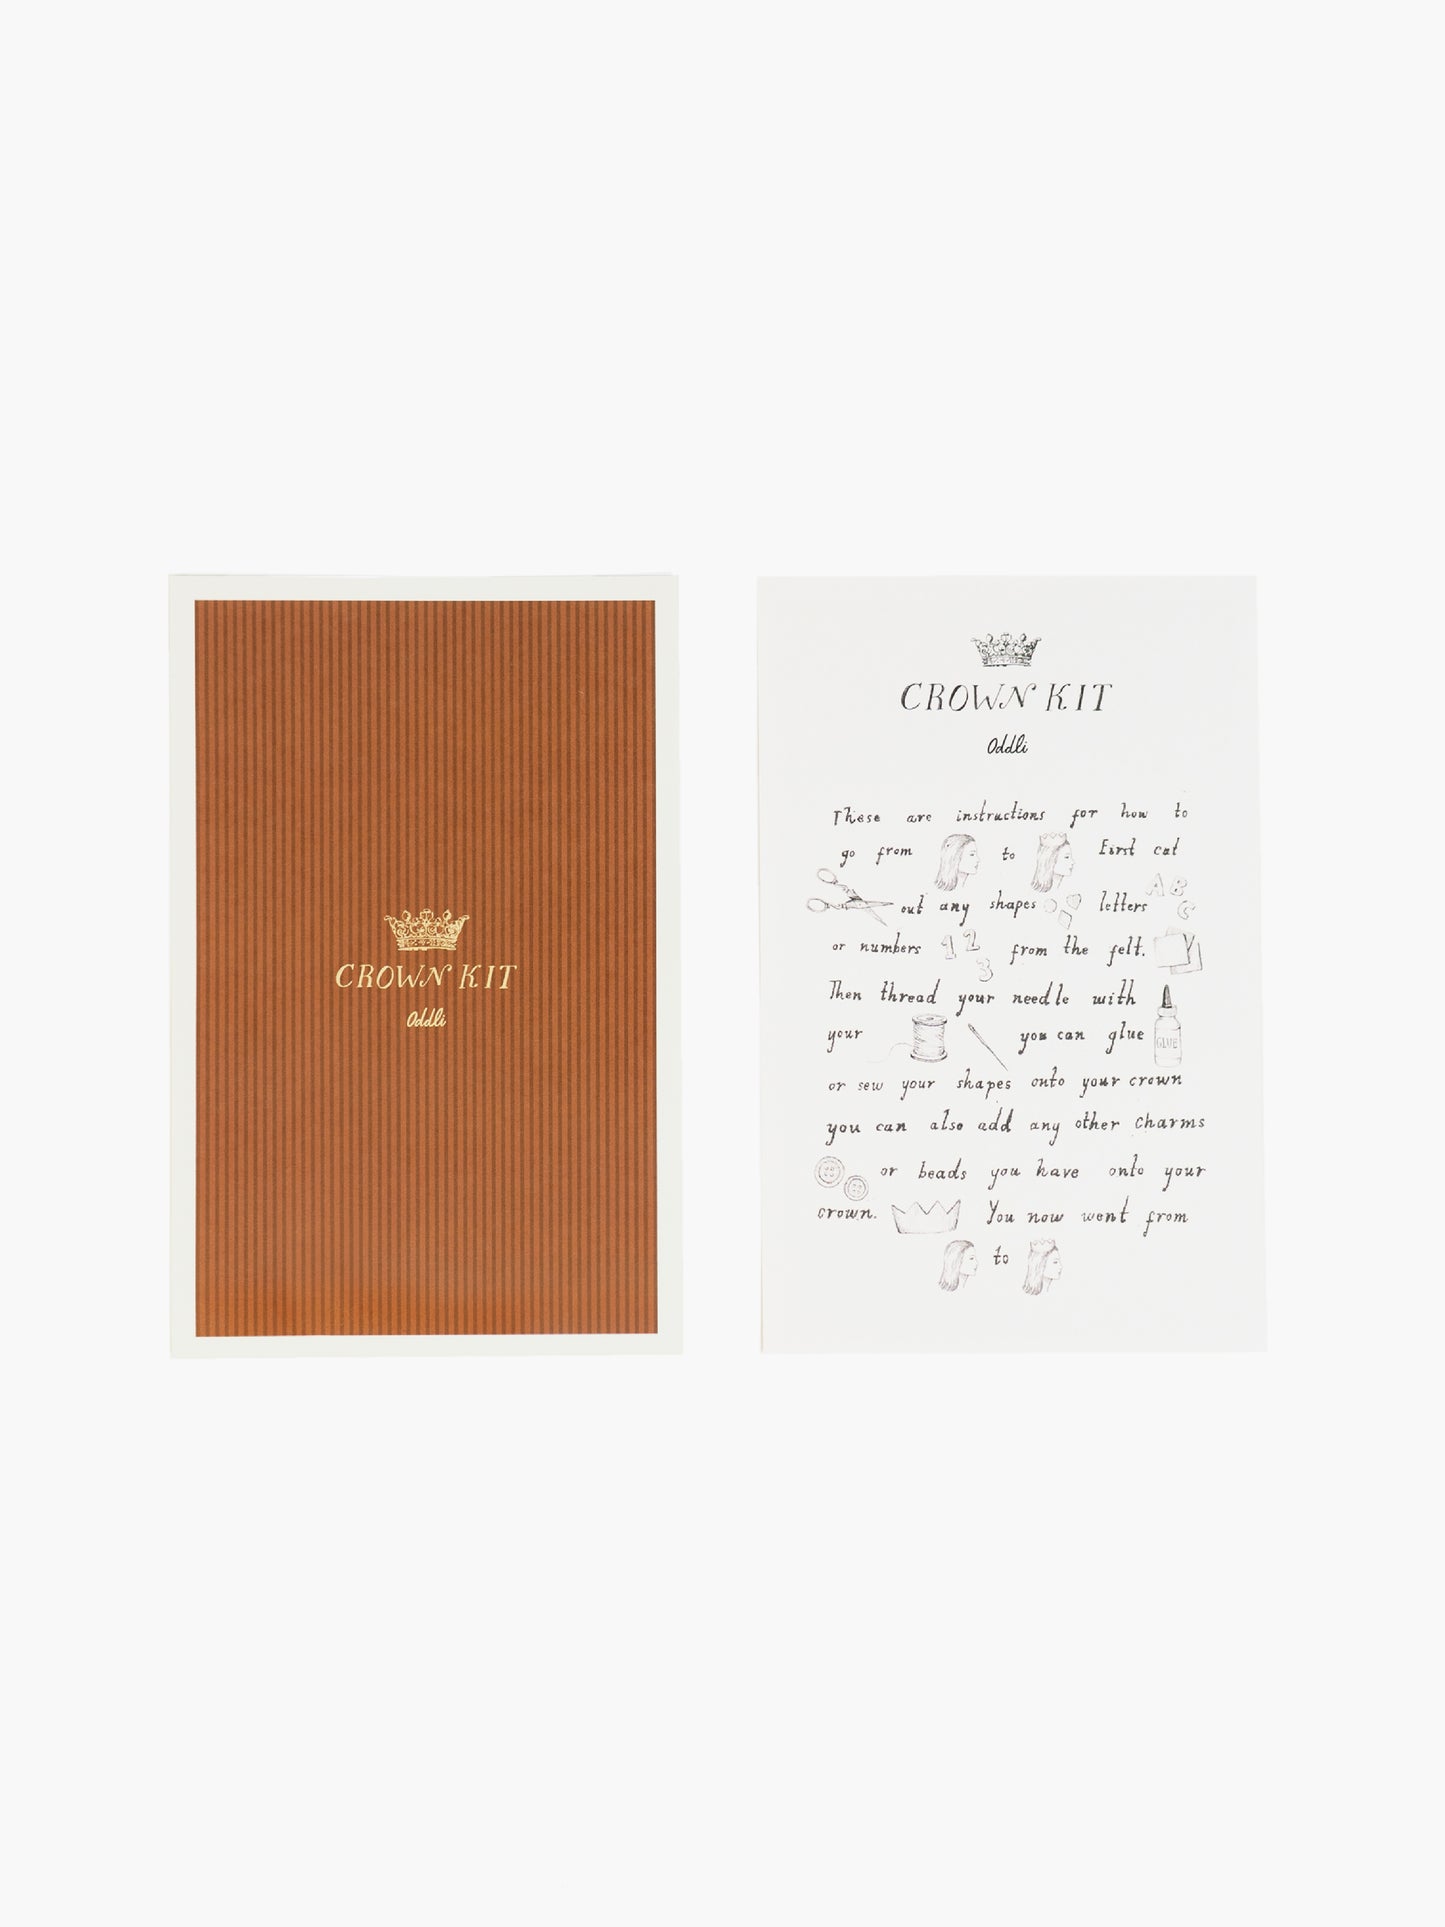 CROWN KIT
Oddli
CROWN KIT
Oddli
These are instructions for how to
go from to First cut
out any shapes letters A B C
or numbers 1 2 3 from the felt.
Then thread your needle with
your you can glue GLUE
or sew your shapes onto your crown
you can also add any other charms
or beads you have onto your
crown. You now went from
to